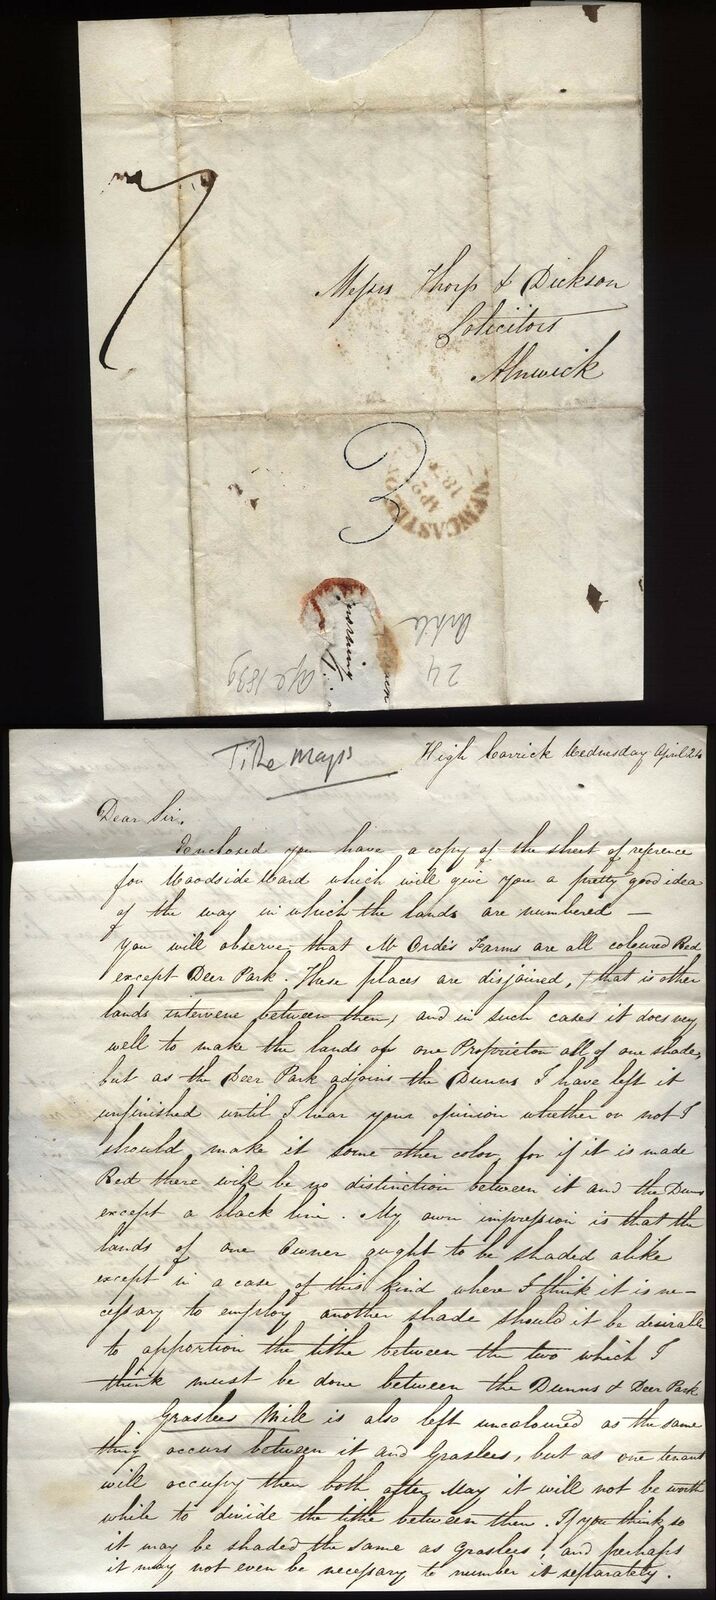 7
Messrs Thorp & Dickson
Solicitors
Alnwick
3
NEWCASTLE
AP 2
morning
24
Apl 1839
Tithe Maps
High Carrick Wednesday April 24
Dear Sir,
Enclosed you have a copy of the sheet of reference
for Woodside Ward which will give you a pretty good idea
of the way in which the lands are numbered —
You will observe that Mr Orde's Farms are all coloured Red
except Deer Park. These places are disjoined, that is other
lands intervene between them, and in such cases it does very
well to make the lands of one Proprietor all of one shade,
but as the Deer Park adjoins the Dunns I have left it
unfinished until I hear your opinion whether or not I
should make it some other color, for if it is made
Red there will be no distinction between it and the Dunns
except a black line. My own impression is that the
lands of one Owner ought to be shaded alike
except in a case of this kind where I think it is ne-
cessary to employ another shade should it be desirable
to apportion the tithe between the two which I
think must be done between the Dunns & Deer Park
Graslees Mill is also left uncoloured as the same
thing occurs between it and Graslees, but as one tenant
will occupy them both after May it will not be worth
while to divide the tithe between them. If you think so
it may be shaded the same as Graslees, and perhaps
it may not even be necessary to number it separately.